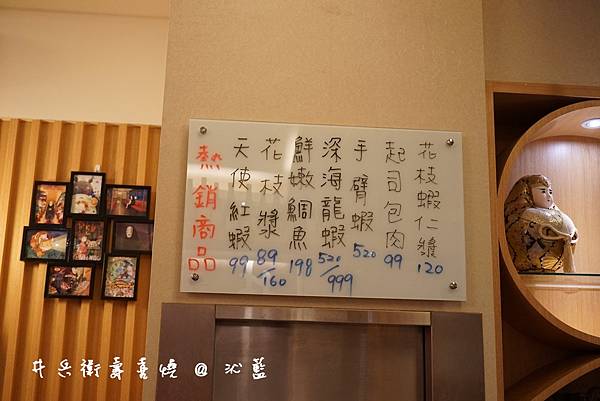 花枝蝦仁漿 120
起司包肉 99
手臂蝦 520
深海龍蝦 520/999
鮮嫩鯛魚 198
花枝漿 89/160
天使紅蝦 99
熱銷商品
井兵衛壽喜燒 @ 沁藍